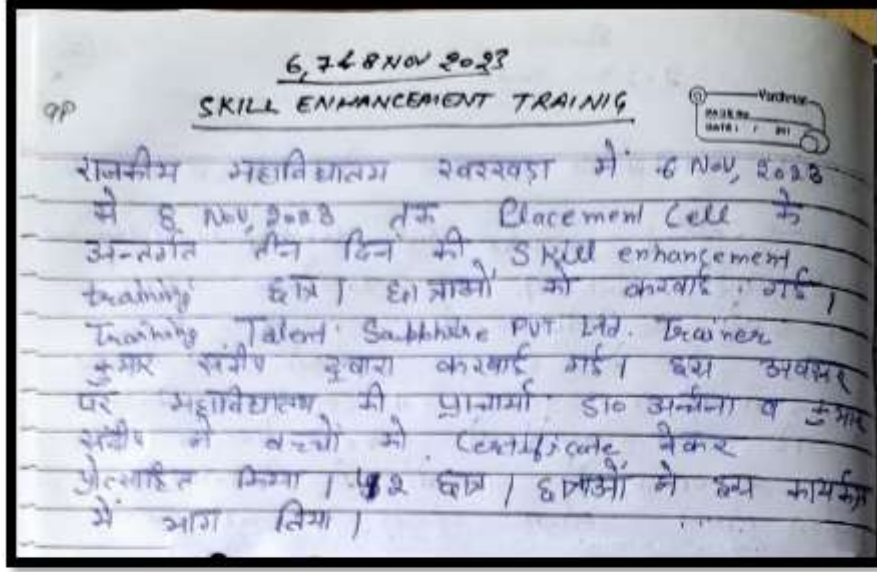 6, 7 & 8 NOV 2023
SKILL ENHANCEMENT TRAINIG
राजकीय महाविद्यालय खरखड़ा में 6 Nov, 2023
से 8 Nov, 2023 तक Placement Cell के
अन्तर्गत तीन दिन की Skill enhancement
training छात्र / छात्राओं को करवाई गई ।
Training Talent PVT Ltd. Trainer
कुमार संदीप द्वारा करवाई गई । इस अवसर
पर महाविद्यालय की प्राचार्या डा० अर्चना व कुमार
संदीप ने बच्चों को Certificate देकर
प्रोत्साहित किया । छात्र / छात्राओं ने इस कार्यक्रम
में भाग लिया ।